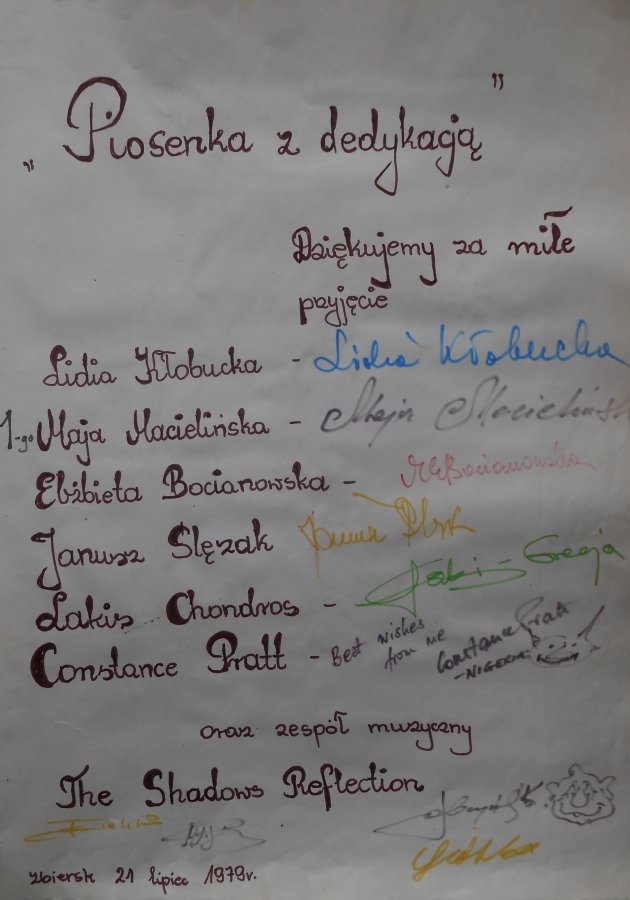 „Piosenka z dedykacją”
Dziękujemy za miłe
przyjęcie
Lidia Kłobucka - Lidia Kłobucka
1-go Maja Macielińska - Maja Macielińska
Elżbieta Bocianowska - Bocianowska
Janusz Ślęzak
Lakis Chondros - Lakis - Grecja
Constance Pratt - Best wishes
from me
Constance Pratt
- NIGERIA
oraz zespół muzyczny
The Shadows Reflection
Zbiersk 21 lipiec 1979r.